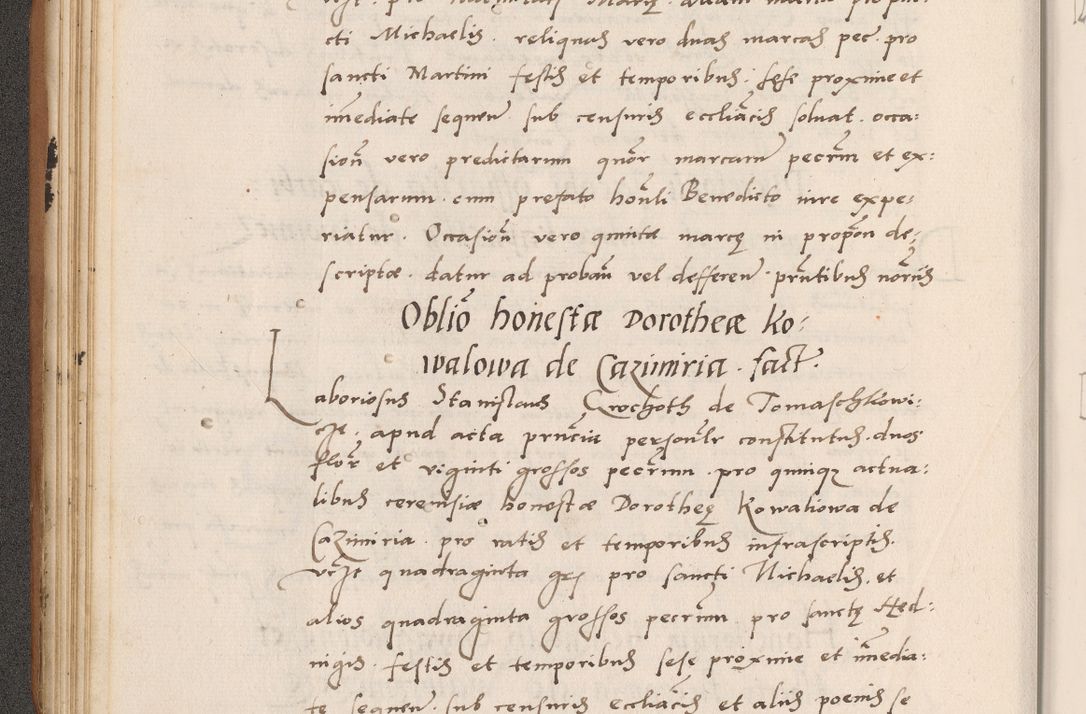 cti Michaelis. reliquas vero duas marcas pec. pro
sancti Martini festis et temporibus. sese proxime et
im̄ediate sequen̄. sub censuris eccliācis soluat. occa:
sion̄ vero predictarum quor̄ marcarum pecr̄m et ex:
pensarum. cum prefato hon̄li Benedicto iure expe:
riatur. Occasion̄ vero quinte marcę in propōn de:
scriptæ. datur ad proban̄ vel defferen̄. pr̄ntibus nor̄iis
Oblīo honestæ Dorotheæ Ko:
walowa de Cazimiria. fact.
Laboriosus Stanislaus Grochoth de Tomaschkowi:
cze. apud acta pr̄ncia personlr̄ constitutus. duos
flor̄ et viginti grossos pecr̄um. pro quinqz actua:
libus cereuisiæ honestæ Dorotheę Kowaliowa de
Cazimiria. pro ratis et temporibus infrascriptis.
vczt quadraginta grs pro sancti Michaelis. et
alios quadraginta grossos pecr̄um. pro sanctę Hed:
uigis. festis et temporibus sese proxime et im̄edia:
te sequen̄. sub censuris eccliācis et aliis poenis se